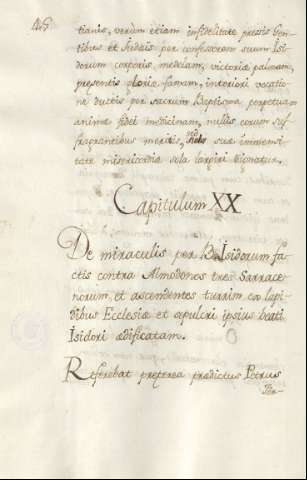 tianis, verùm etiam infidelitate pressis Gen-
tibus et Judæis per confessorem suum Isi-
dorum corporis medelam, victoriæ palmam,
præsentis gloriæ famam, interiori vocatio-
ne ductis per sacrum Baptisma perpetuam
animæ fidei medicinam, nullis eorum suf-
fragantibus meritis, suæ immensi-
tate misericordiæ sola largiri dignatur.
Capitulum XX
De miraculis per B. Isidorum fa-
ctis contra Almodonos tres Sarrace-
norum, et ascendentes turrim ex lapi-
dibus Ecclesiæ et sepulcri ipsius beati
Isidori ædificatam.
Referebat præterea prædictus Petrus